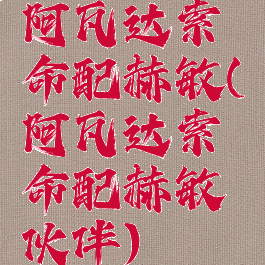 阿瓦达索
命配赫敏(
阿瓦达索
命配赫敏
伙伴)